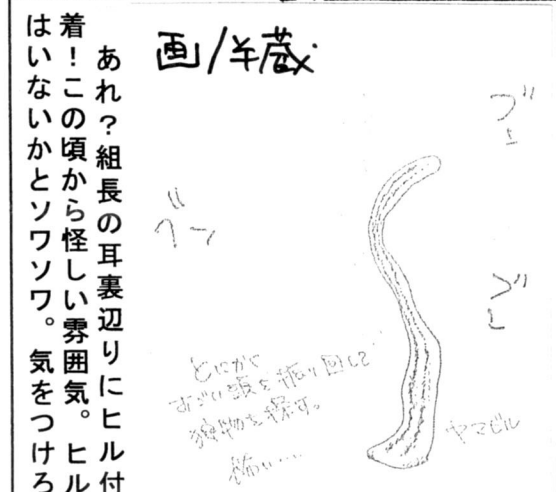 あれ？組長の耳裏辺りにヒル付
着！この頃から怪しい雰囲気。ヒル
はいないかとソワソワ。気をつけろ
画/半蔵
とにかく
すごい頭を振り回して
獲物を探す。
怖い……
ヤマビル